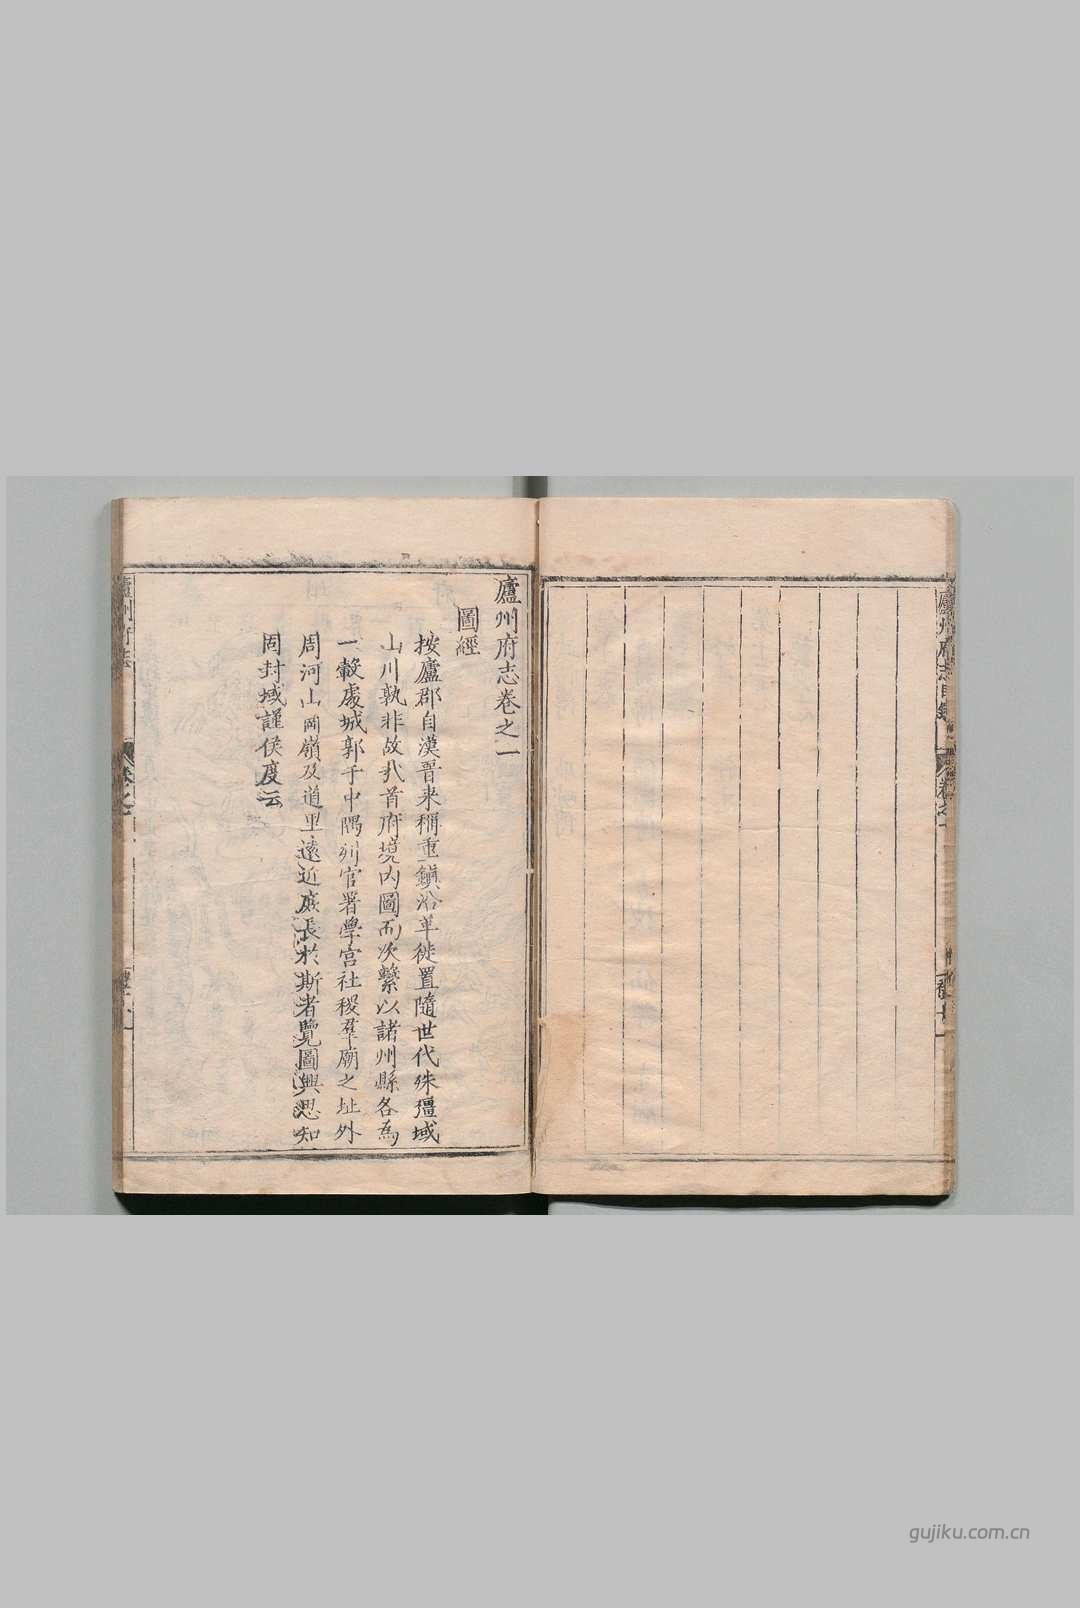 廬州府志目錄
卷之一
廬州府志卷之一
圖經
按廬郡自漢晉來稱重鎮沿革徙置隨世代殊彊域
山川孰非故我首府境內圖而次繫以諸州縣各為
一載處城郭于中隅列官署學宮社稷羣廟之址外
周河山岡嶺及道里遠近廣長於斯者覽圖興思知
固封域謹侯度云
廬州府志
卷之一
gujiku.com.cn